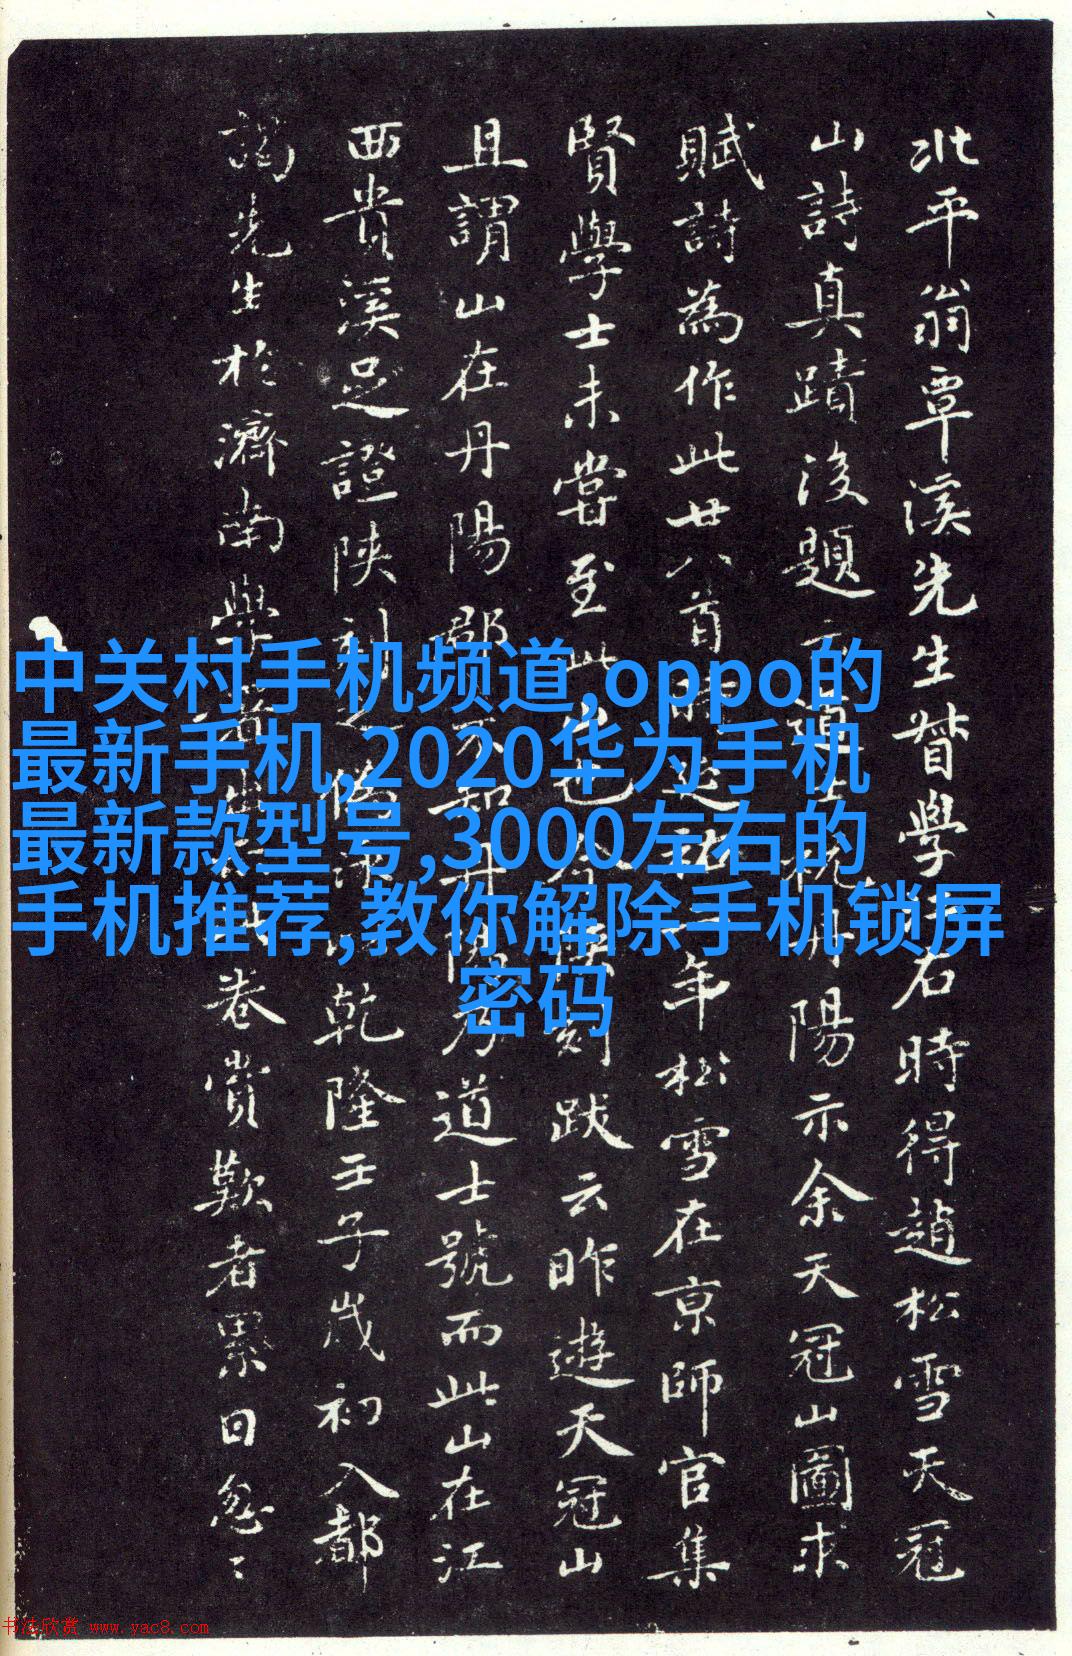 北平翁覃溪先生督學江右時得趙松雪天冠
山詩真蹟後題
陽示余天冠山圖求
賦詩為作此廿八首
年松雪在京師官集
賢學士未嘗至此
刻跋云昨遊天冠山
且謂山在丹陽郡
道士號而此山在江
西貴溪足證陝刻之
乾隆壬子歲初入都
謁先生於濟南學
卷賞歎者累日忽〻
中关村手机频道,oppo的
最新手机,2020华为手机
最新款型号,3000左右的
手机推荐,教你解除手机锁屏
密码
书法欣赏 www.yac8.com